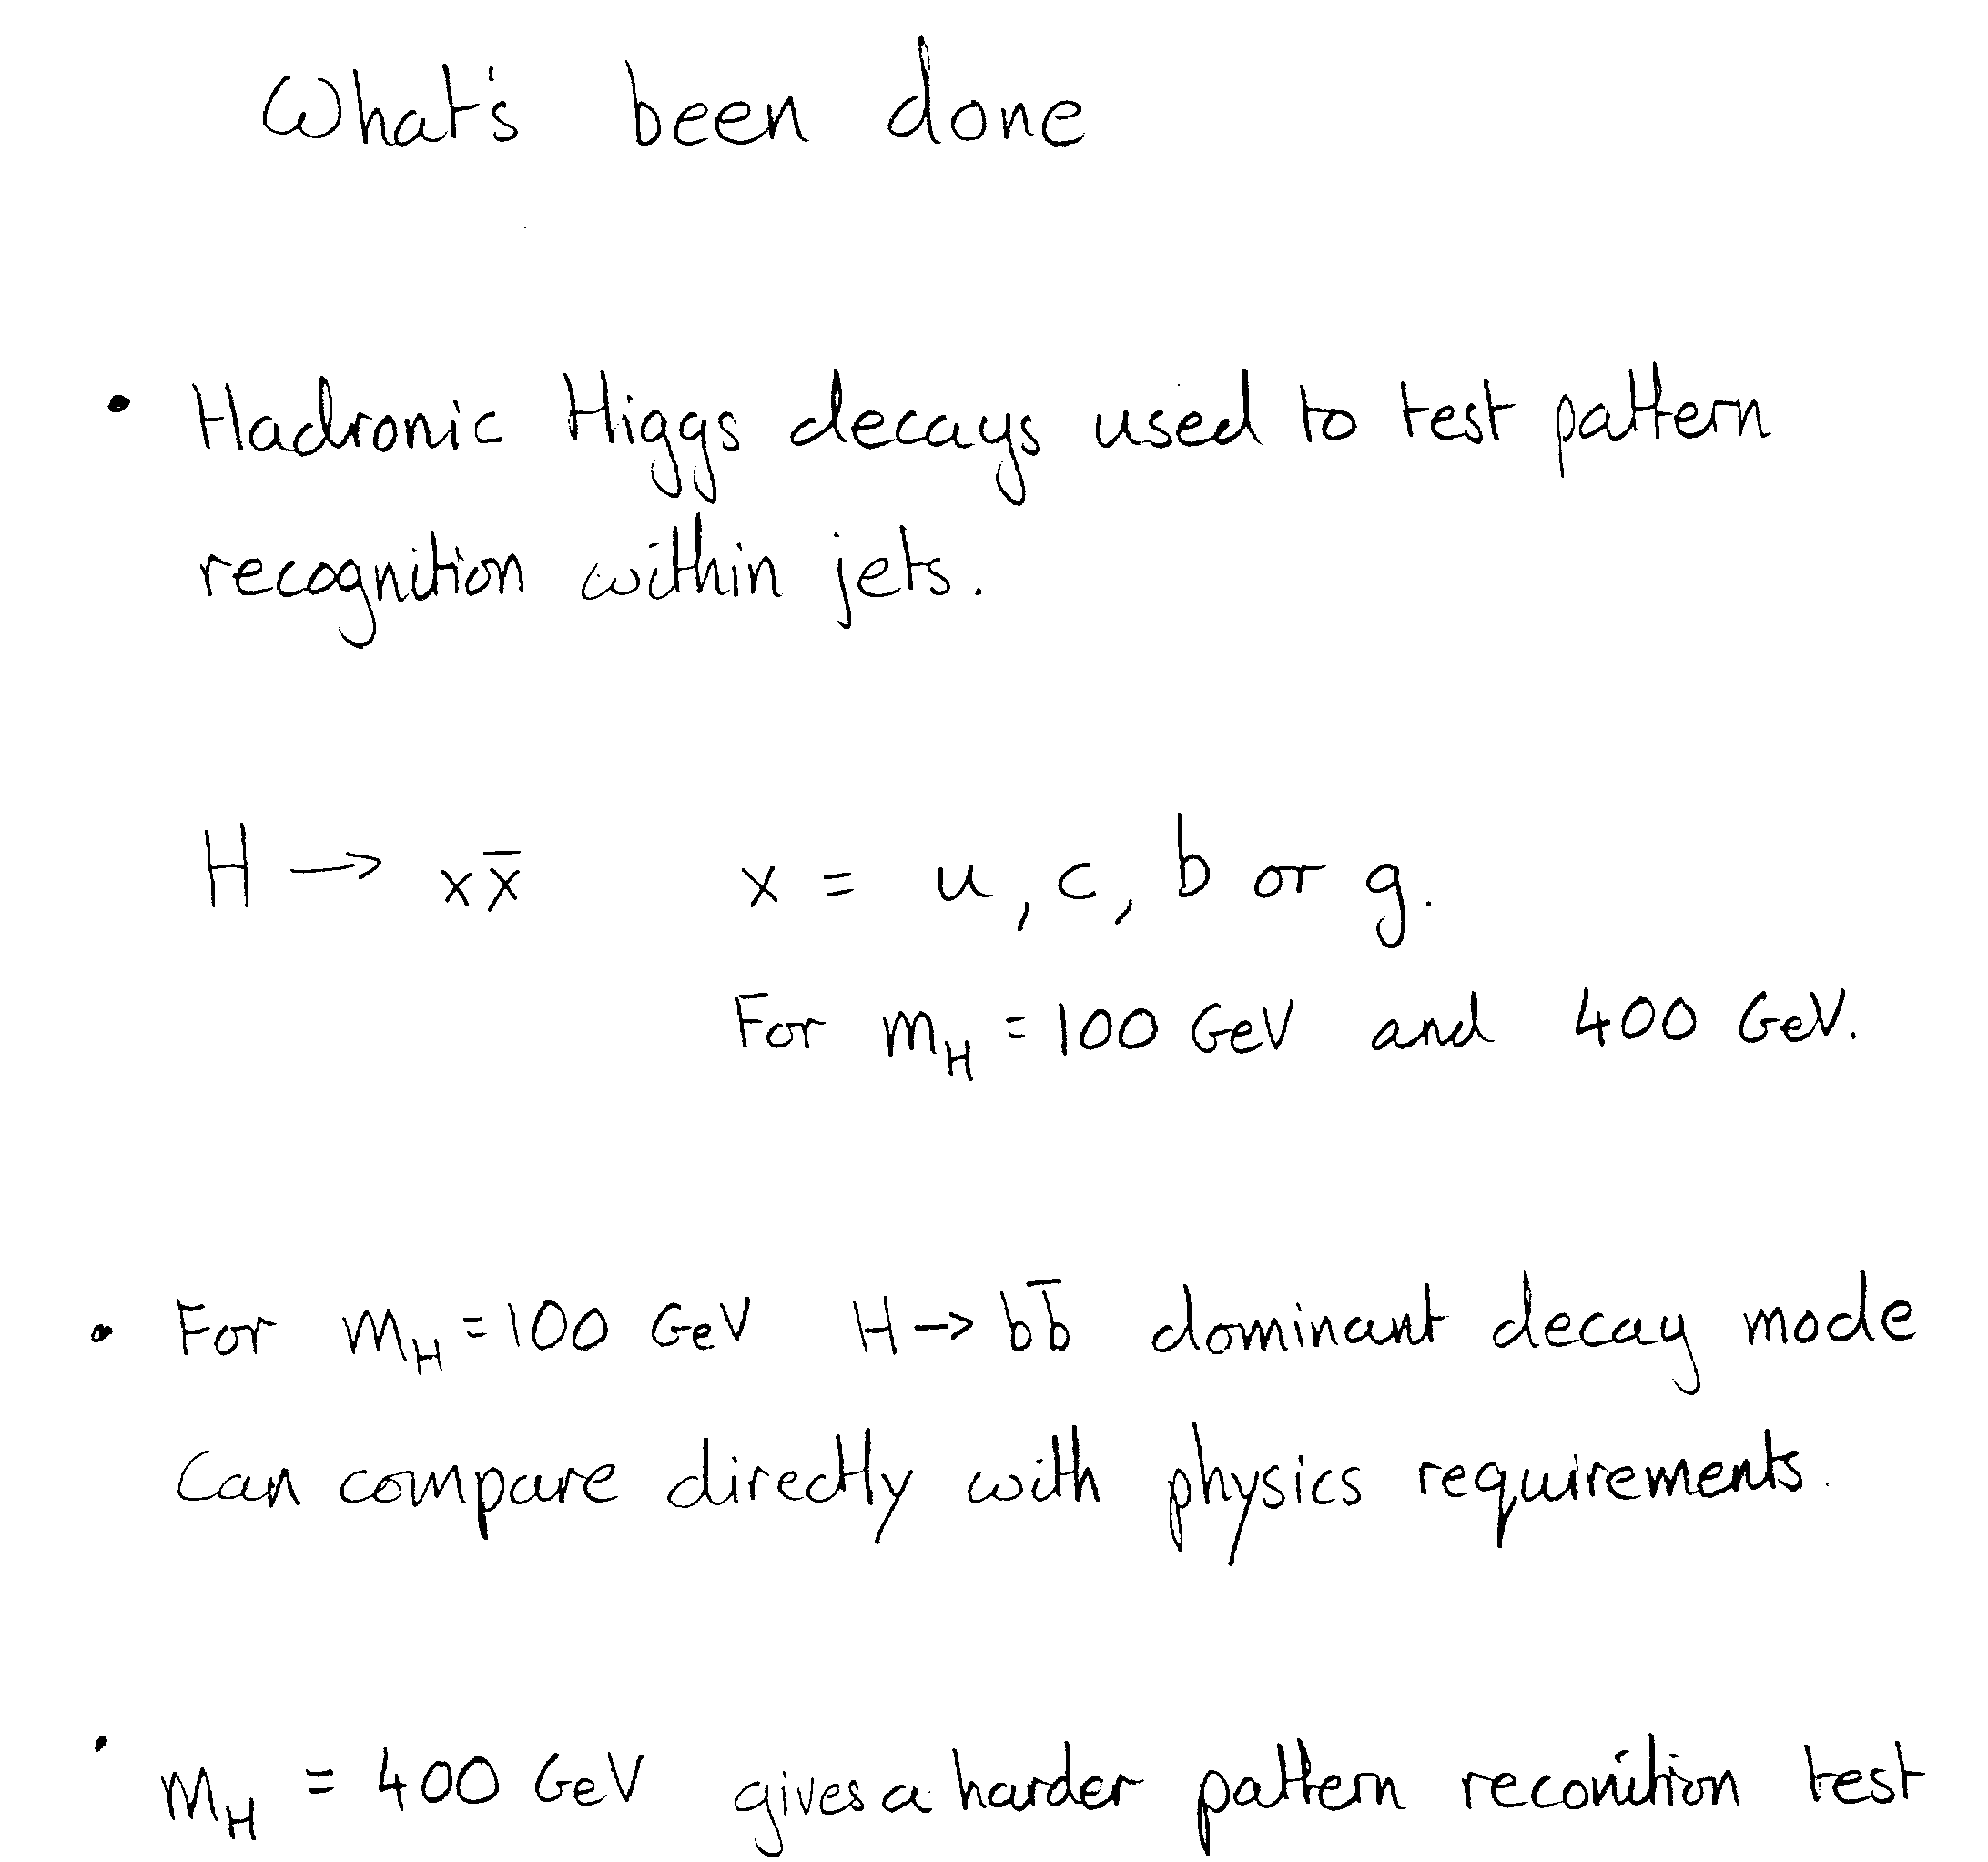 What's been done
• Hadronic Higgs decays used to test pattern
recognition within jets.
H → xx̄ x = u, c, b or g.
For m_H = 100 GeV and 400 GeV.
• For m_H = 100 GeV H → bb̄ dominant decay mode
Can compare directly with physics requirements.
• m_H = 400 GeV gives a harder pattern reconition test